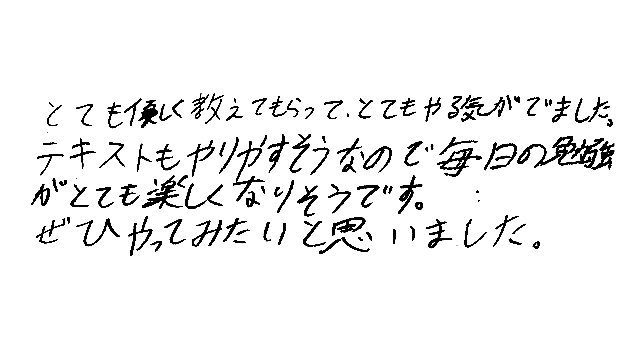 とても優しく教えてもらって、とてもやる気がでました。
テキストもやりやすそうなので毎日の勉強
がとても楽しくなりそうです。
ぜひやってみたいと思いました。